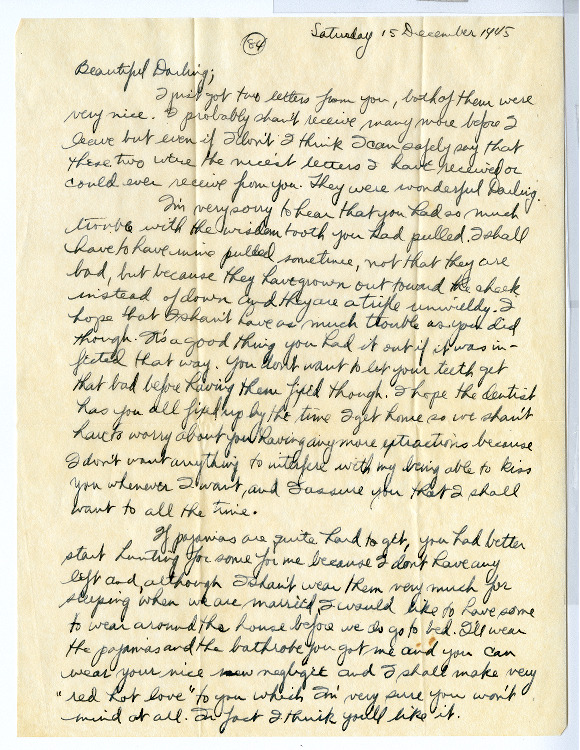 84
Saturday 15 December 1945
Beautiful Darling;
I just got two letters from you, both of them were
very nice. I probably shan't receive many more before I
leave but even if I don't I think I can safely say that
these two were the nicest letters I have received or
could ever receive from you. They were wonderful Darling.
I'm very sorry to hear that you had so much
trouble with the wisdom tooth you had pulled. I shall
have to have mine pulled sometime, not that they are
bad, but because they have grown out toward the cheek
instead of down and they are a trifle unwieldy. I
hope that I shan't have as much trouble as you did
though. It's a good thing you had it out if it was in-
fected that way. You don't want to let your teeth get
that bad before having them fixed though. I hope the dentist
has you all fixed up by the time I get home so we shan't
have to worry about you having any more extractions because
I don't want anything to interfere with my being able to kiss
you whenever I want, and I assure you that I shall
want to all the time.
If pajamas are quite hard to get, you had better
start hunting for some for me because I don't have any
left and, although I shan't wear them very much for
sleeping when we are married, I would like to have some
to wear around the house before we do go to bed. I'll wear
the pajamas and the bathrobe you got me and you can
wear your nice new negligee and I shall make very
"red hot love" to you which I'm very sure you won't
mind at all. In fact I think you'll like it.